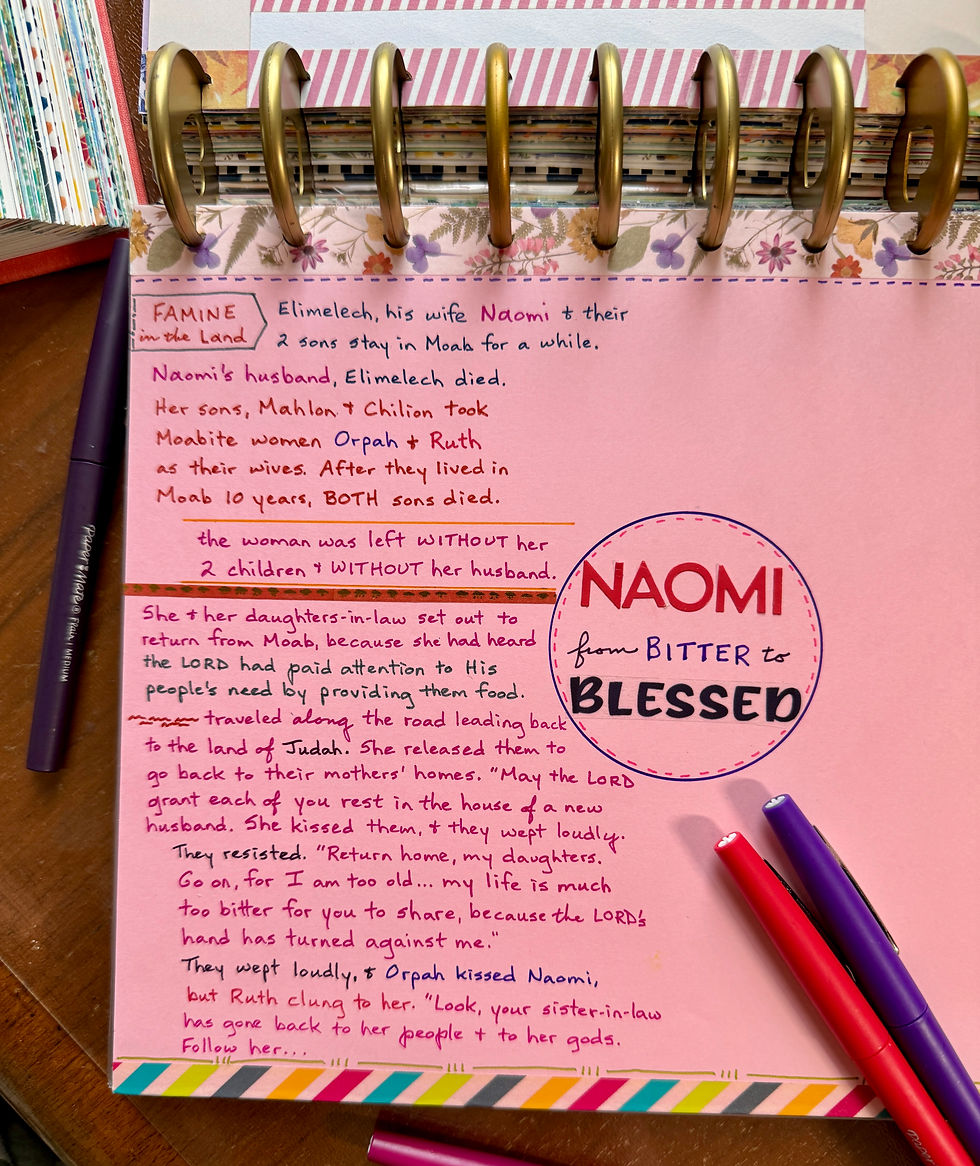 FAMINE
in the Land
Elimelech, his wife Naomi & their
2 sons stay in Moab for a while.
Naomi's husband, Elimelech died.
Her sons, Mahlon & Chilion took
Moabite women Orpah & Ruth
as their wives. After they lived in
Moab 10 years, BOTH sons died.
the woman was left WITHOUT her
2 children & WITHOUT her husband.
She & her daughters-in-law set out to
return from Moab, because she had heard
the LORD had paid attention to His
people's need by providing them food.
traveled along the road leading back
to the land of Judah. She released them to
go back to their mothers' homes. "May the LORD
grant each of you rest in the house of a new
husband. She kissed them, & they wept loudly.
They resisted. "Return home, my daughters.
Go on, for I am too old... my life is much
too bitter for you to share, because the LORD's
hand has turned against me."
They wept loudly, & Orpah kissed Naomi,
but Ruth clung to her. "Look, your sister-in-law
has gone back to her people & to her gods.
Follow her...
NAOMI
from BITTER to
BLESSED
Paper Mate® Flair | MEDIUM